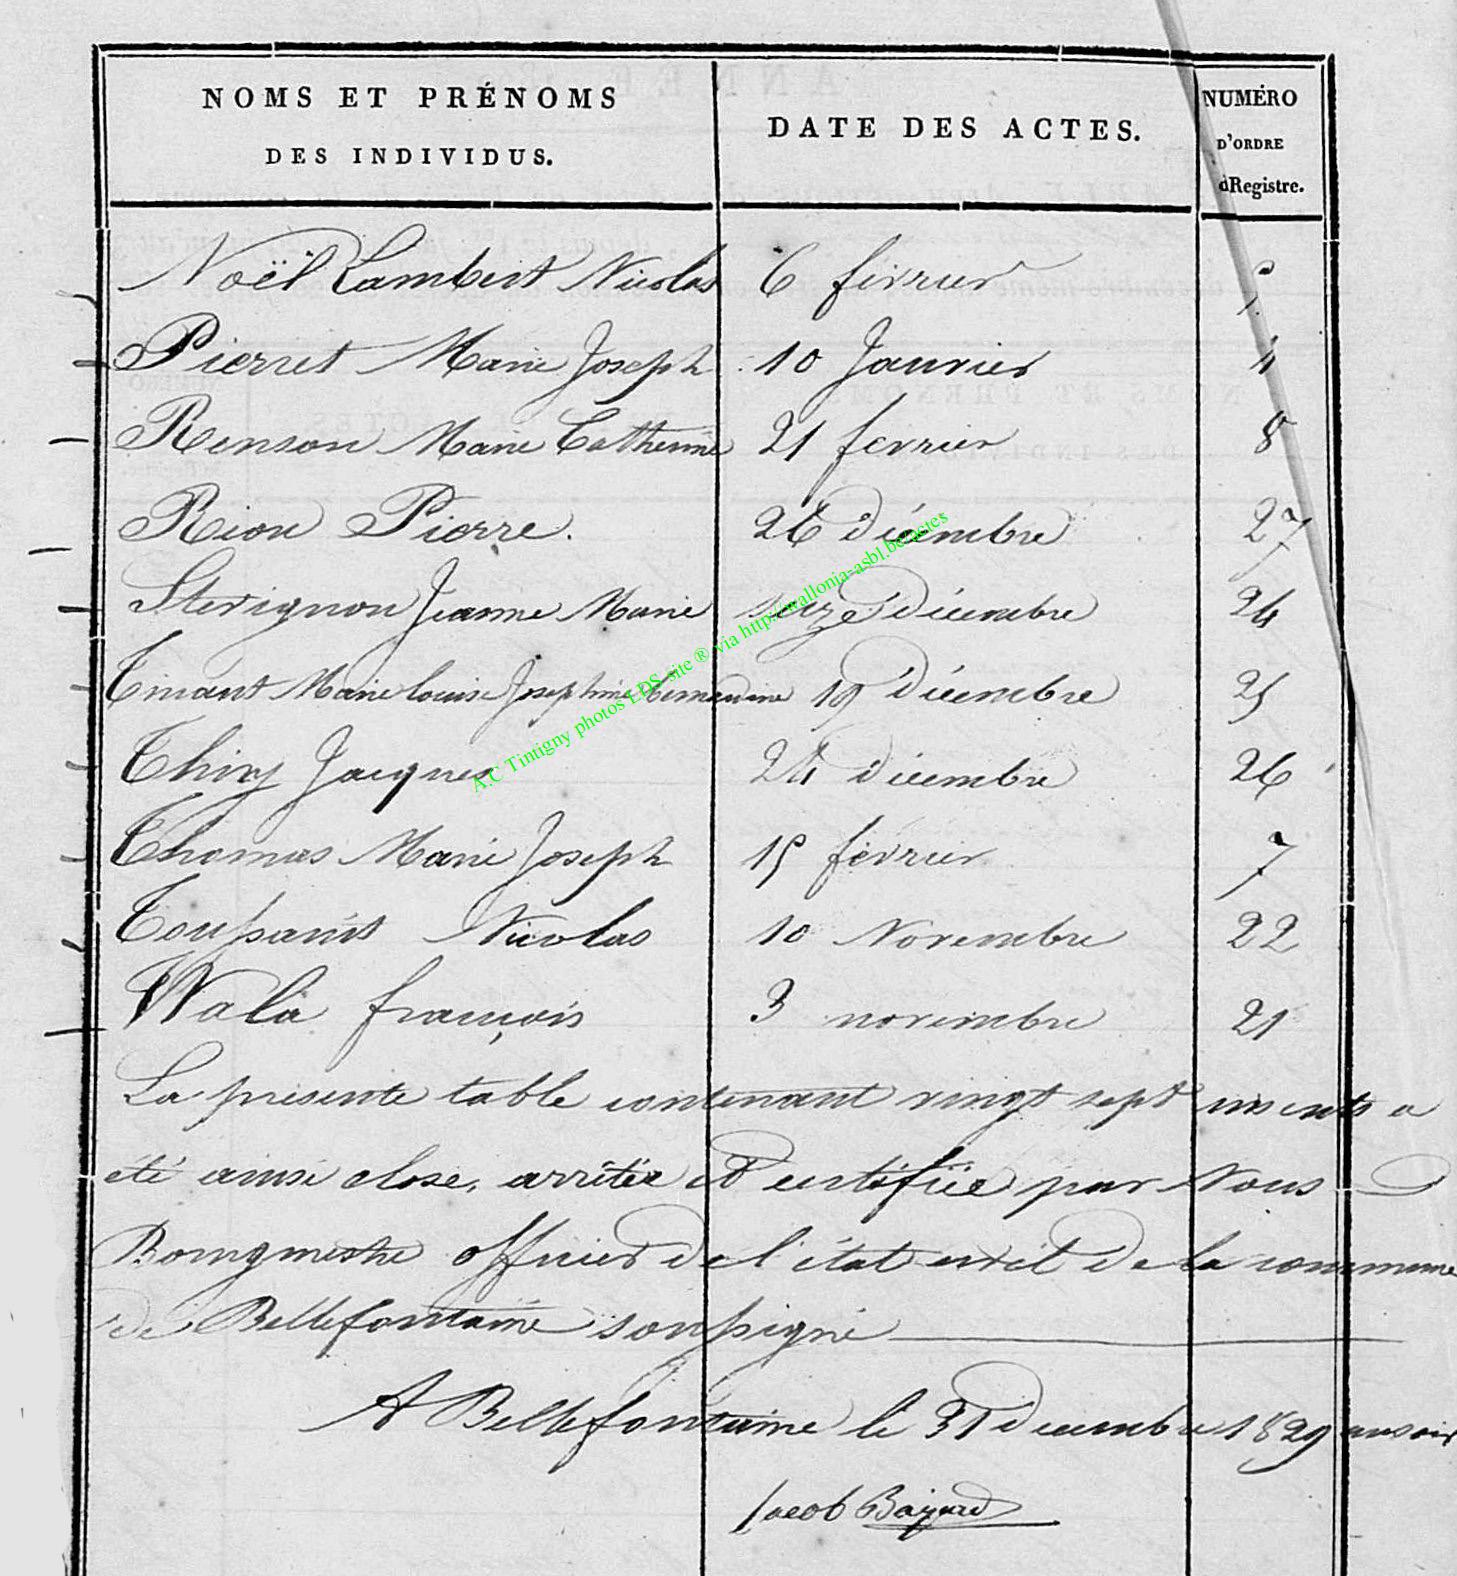 NOMS ET PRÉNOMS
DES INDIVIDUS.
DATE DES ACTES.
NUMÉRO
D'ORDRE
dRegistre.
Noël Lambert Nicolas 6 février 5
Pierret Marie Joseph 10 Janvier 4
Renson Marie Catherine 21 fevrier 8
Rion Pierre. 26 décembre 27
Stevignon Jeanne Marie seize décembre 24
Tinant Marie louise Josephine 19 décembre 25
Thiry Jacques 24 décembre 26
Thomas Marie Joseph 15 février 7
Toussaint Nicolas 10 Novembre 22
Wala françois 3 novembre 21
La présente table contenant vingt sept a
été ainsi close, arrêtée et certifiée par Nous
Bourgmestre officier de l'état civil de la commune
de Bellefontaine soussigné
A Bellefontaine le 31 décembre 1829 au soir
Jacob Bayard
A.C Tintigny photos LDS site ® via http://wallonia-asbl.be/actes